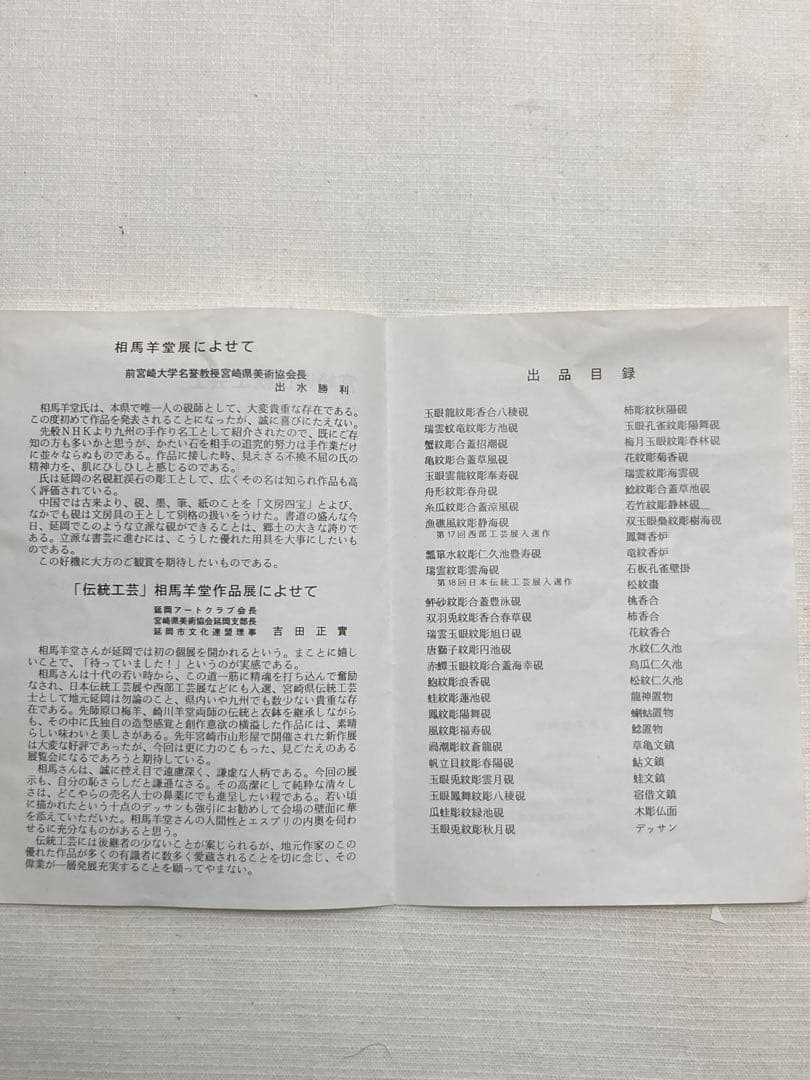 相馬羊堂展によせて
前宮崎大学名誉教授宮崎県美術協会長
出水勝利
相馬羊堂氏は、本県で唯一人の硯師として、大変貴重な存在である。
この度初めて作品を発表されることになったが、誠に喜びにたえない。
先般NHKより九州の手作り名工として紹介されたので、既にご存
知の方も多いかと思うが、かたい石を相手の追究的努力は手作業だけ
に並々ならぬものである。作品に接した時、見えざる不撓不屈の氏の
精神力を、肌にひしひしと感じるのである。
氏は延岡の名硯紅渓石の彫工として、広くその名は知られ作品も高
く評価されている。
中国では古来より、硯、墨、筆、紙のことを「文房四宝」とよび、
なかでも硯は文房具の王として別格の扱いをうけた。書道の盛んな今
日、延岡でこのような立派な硯ができることは、郷土の大きな誇りで
ある。立派な書芸に進むには、こうした優れた用具を大事にしたいも
のである。
この好機に大方のご観賞を期待したいものである。
「伝統工芸」相馬羊堂作品展によせて
延岡アートクラブ会長
宮崎県美術協会延岡支部長
延岡市文化連盟理事 吉田正實
相馬羊堂さんが延岡では初の個展を開かれるという。まことに嬉し
いことで、「待っていました!」というのが実感である。
相馬さんは十代の若い時から、この道一筋に精魂を打ち込んで奮励
なされ、日本伝統工芸展や西部工芸展などにも入選、宮崎県伝統工芸
士として地元延岡は勿論のこと、県内いや九州でも数少ない貴重な存
在である。先師原口梅羊、崎川羊堂両師の伝統と衣鉢を継承しながら
も、その中に氏独自の造型感覚と創作意欲の横溢した作品には、素晴
らしい味わいと美しさがある。先年宮崎市山形屋で開催された新作展
は大変な好評であったが、今回は更に力のこもった、見ごたえのある
展覧会になるであろうと期待している。
相馬さんは、誠に控え目で遠慮深く、謙虚な人柄である。今回の展
示も、自分の恥さらしだと謙遜なさる。その高潔にして純粋な清々し
さは、どこやらの売名人士の鼻薬にでも進呈したい程である。若い頃
に描かれたという十点のデッサンも強引にお勧めして会場の壁面に華
を添えていただいた。相馬羊堂さんの人間性とエスプリの内奥を伺わ
せるに充分なものがあると思う。
伝統工芸には後継者の少ないことが案じられるが、地元作家のこの
優れた作品が多くの有識者に数多く愛蔵されることを切に念じ、その
偉業が一層発展充実することを願ってやまない。
出品目録
玉眼龍紋彫香合八稜硯
瑞雲蚊竜紋彫方池硯
蟹紋彫合蓋招潮硯
亀紋彫合蓋草風硯
玉眼雲龍紋彫奉寿硯
舟形紋彫春舟硯
糸瓜紋彫合蓋涼風硯
漁礁風紋彫静海硯
第17回西部工芸展入選作
瓢箪水紋彫仁久池豊寿硯
瑞雲紋彫雲海硯
第18回日本伝統工芸展入選作
紋彫合蓋豊泳硯
双羽兎紋彫香合春草硯
瑞雲玉眼紋彫旭日硯
唐獅子紋彫円池硯
赤蟳玉眼紋彫香合蓋海幸硯
鮑紋彫浪香硯
蛙紋彫蓮池硯
鳳紋彫陽舞硯
風紋彫福寿硯
渦潮彫紋蒼龍硯
帆立貝紋彫春陽硯
玉眼兎紋彫雲月硯
玉眼鳳舞紋彫八稜硯
瓜蛙彫紋緑池硯
玉眼兎紋彫秋月硯
柿彫紋秋陽硯
玉眼孔雀紋彫陽舞硯
梅月玉眼紋彫春林硯
花紋彫菊香硯
瑞雲紋彫海雲硯
鯰紋彫合蓋草池硯
若竹紋彫静林硯
双玉眼梟紋彫樹海硯
鳳舞香炉
竜紋香炉
石板孔雀壁掛
松紋棗
桃香合
柿香合
花紋香合
水紋仁久池
烏瓜仁久池
松紋仁久池
龍神置物
蝲蛄置物
鯰置物
草亀文鎮
鮎文鎮
蛙文鎮
宿借文鎮
木彫仏面
デッサン